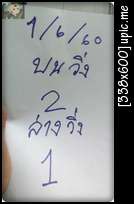 1/6/60
บน วิ่ง
2
ล่าง วิ่ง
1
[338x600] upic.me